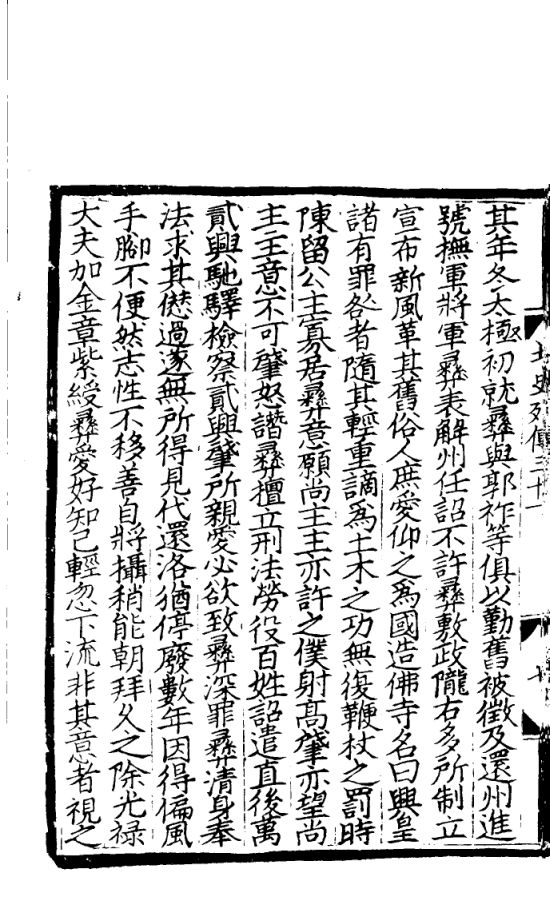 其年冬太極初就彝與郭祚等俱以勤舊被徵及還州進
號撫軍將軍彝表解州任詔不許彝敷政隴右多所制立
宣布新風革其舊俗人庶愛仰之為國造佛寺名曰興皇
諸有罪咎者隨其輕重謫為土木之功無復鞭杖之罰時
陳留公主寡居彝意願尚主主亦許之僕射高肇亦望尚
主主意不可肇怒譖彝擅立刑法勞役百姓詔遣直後萬
貳興馳驛檢察貳興肇所親愛必欲致彝深罪彝清身奉
法求其愆過遂無所得見代還洛猶停廢數年因得偏風
手腳不便然志性不移善自將攝稍能朝拜久之除光祿
大夫加金章紫綬彝愛好知己輕忽下流非其意者視之